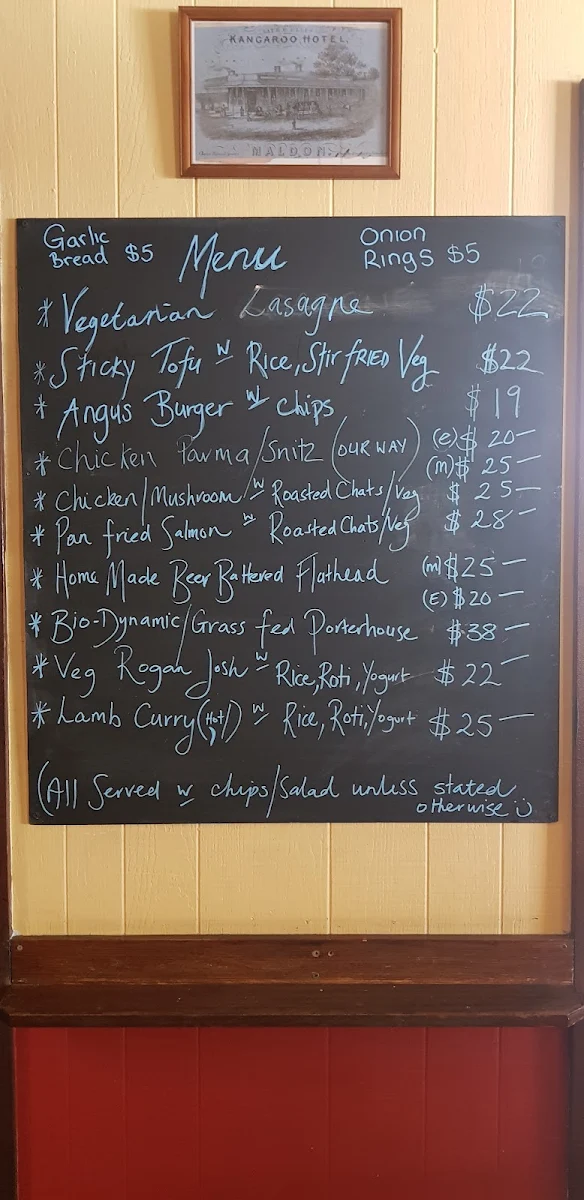 KANGAROO HOTEL.
MALDON.
Garlic Bread $5
Menu
Onion Rings $5
* Vegetarian Lasagne $22
* Sticky Tofu w Rice, Stir FRIED Veg $22
* Angus Burger w chips $19
* Chicken Parma/Snitz (OUR WAY) (e) $20-
(m) $25-
* Chicken/Mushroom w Roasted Chats/Veg $25-
* Pan fried Salmon w Roasted Chats/Veg $28-
* Home Made Beer Battered Flathead (m) $25-
(E) $20-
* Bio-Dynamic/Grass fed Porterhouse $38-
* Veg Rogan Josh w Rice, Roti, Yogurt $22-
* Lamb Curry (Hot!) w Rice, Roti, Yogurt $25-
(All Served w chips/Salad unliss stated
otherwise